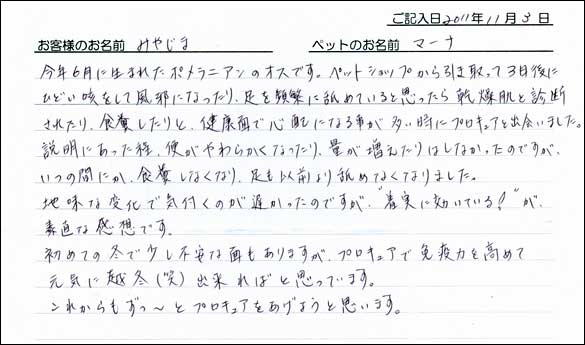 ご記入日2011年11月3日
お客様のお名前 みやじま ペットのお名前 マーナ
今年6月に生まれたポメラニアンのオスです。ペットショップから引き取って3日後に
ひどい咳をして風邪になったり、足を頻繁に舐めていると思ったら乾燥肌と診断
されたり、食糞したりと、健康面で心配になる事が多い時にプロキュアと出会いました。
説明にあった程、便がやわらかくなったり、量が増えたりはしなかったのですが、
いつの間にか、食糞しなくなり、足も以前より舐めなくなりました。
地味な変化で気付くのが遅かったのですが、"着実に効いている!"が、
素直な感想です。
初めての冬で少し不安な面もありますが、プロキュアで免疫力を高めて
元気に越冬(笑)出来ればと思っています。
これからもずっ〜とプロキュアをあげようと思います。